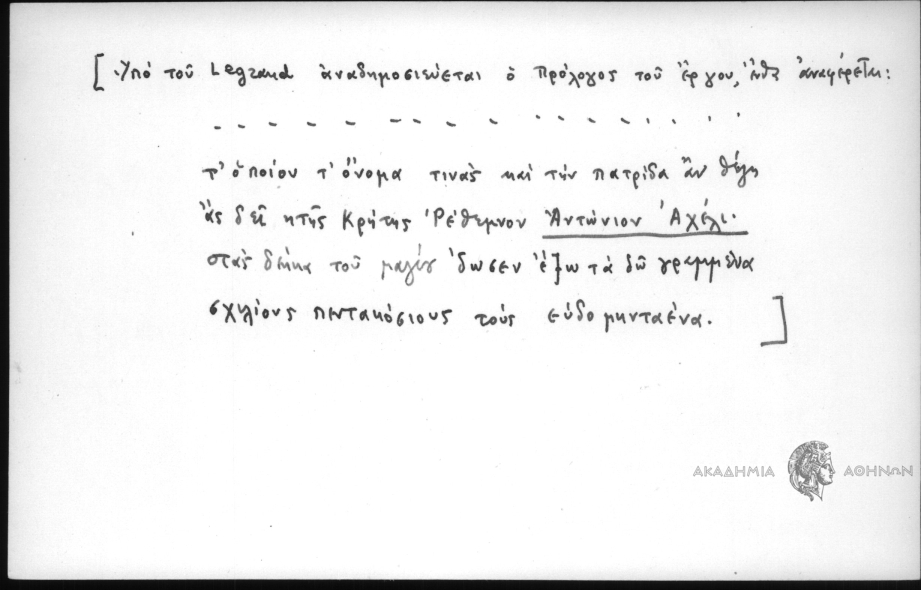 [ Ὑπό τοῦ Legrand ἀναδημοσιεύεται ὁ πρόλογος τοῦ ἔργου, ἀναφέρεται:
τ' ὁποίου τ' ὄνομα τινάς καί τήν πατρίδα ἄν θέλη
ἄς δεῖ κ τῆς Κρήτης Ῥέθεμνον Ἀντώνιον Ἀχέλι.
στάς δέκα τοῦ μαγίου ἔδωσεν ἔξω τά δῶ γραμμένα
σχιλίους πεντακόσιους τούς εὐδομηνταένα. ]
ΑΚΑΔΗΜΙΑ ΑΘΗΝΩΝ